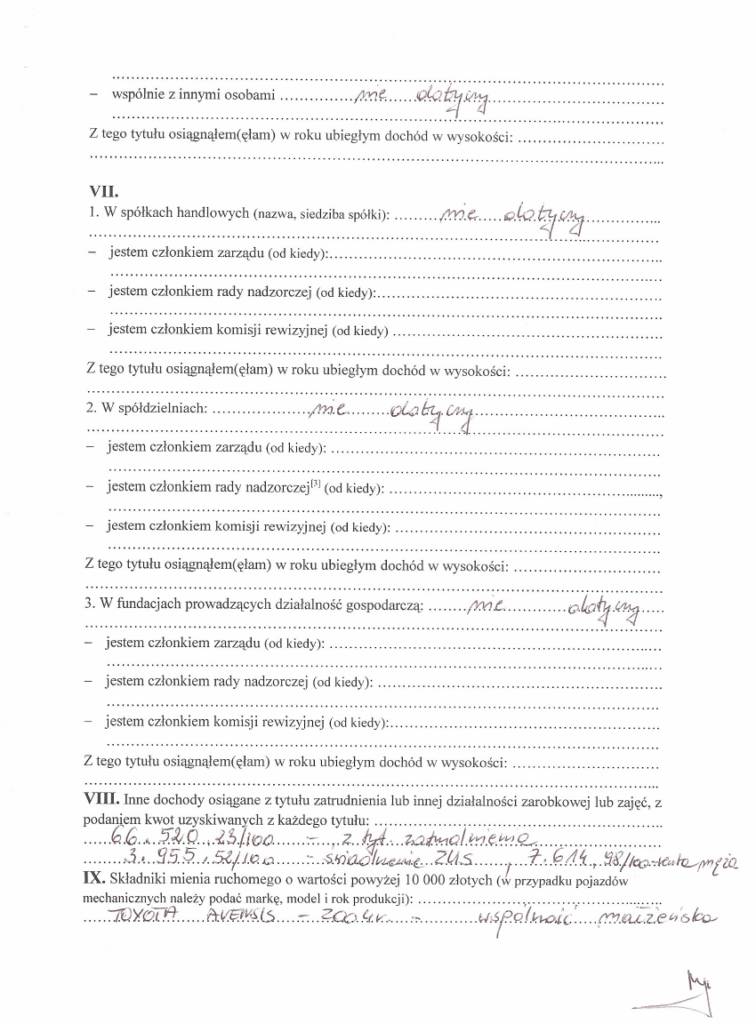 – wspólnie z innymi osobami ............... nie ...... dotyczy ...............
Z tego tytułu osiągnąłem(ęłam) w roku ubiegłym dochód w wysokości: ...............
VII.
1. W spółkach handlowych (nazwa, siedziba spółki): .......... nie ..... dotyczy ...............
– jestem członkiem zarządu (od kiedy):...............
– jestem członkiem rady nadzorczej (od kiedy):...............
– jestem członkiem komisji rewizyjnej (od kiedy) ...............
Z tego tytułu osiągnąłem(ęłam) w roku ubiegłym dochód w wysokości: ...............
2. W spółdzielniach: ............... nie ......... dotyczy ...............
– jestem członkiem zarządu (od kiedy): ...............
– jestem członkiem rady nadzorczej[3] (od kiedy): ...............,
– jestem członkiem komisji rewizyjnej (od kiedy): ...............
Z tego tytułu osiągnąłem(ęłam) w roku ubiegłym dochód w wysokości: ...............
3. W fundacjach prowadzących działalność gospodarczą: ........ nie ............. dotyczy .....
– jestem członkiem zarządu (od kiedy): ...............
– jestem członkiem rady nadzorczej (od kiedy): ...............
– jestem członkiem komisji rewizyjnej (od kiedy):...............
Z tego tytułu osiągnąłem(ęłam) w roku ubiegłym dochód w wysokości: ...............
VIII. Inne dochody osiągane z tytułu zatrudnienia lub innej działalności zarobkowej lub zajęć, z
podaniem kwot uzyskiwanych z każdego tytułu: ...............
66.520,23/100 – z tyt. zatrudnienia
3.955,52/100 – świadczenie ZUS, 7.614,98/100-renta męża
IX. Składniki mienia ruchomego o wartości powyżej 10 000 złotych (w przypadku pojazdów
mechanicznych należy podać markę, model i rok produkcji): ...............
TOYOTA AVENSIS – 2004r – wspólność małżeńska